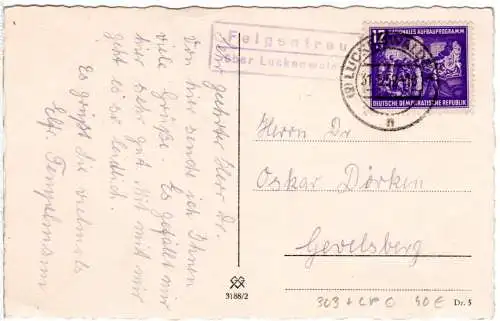 Felgentreu
über Luckenwalde
Sehr geehrter Herr Dr.
Von hier sende ich Ihnen
viele Grüße. Es gefällt mir
hier sehr gut. Mit mir
geht es so leidlich.
Es grüßt Sie vielmals
Elfr. Tempelmann
12 NATIONALES AUFBAUPROGRAMM
DEUTSCHE DEMOKRATISCHE REPUBLIK
LUCKENWALDE
n
Herrn Dr
Oskar Dörken
Gevelsberg
3188/2
303 + LP O 40 E
Dr. 5